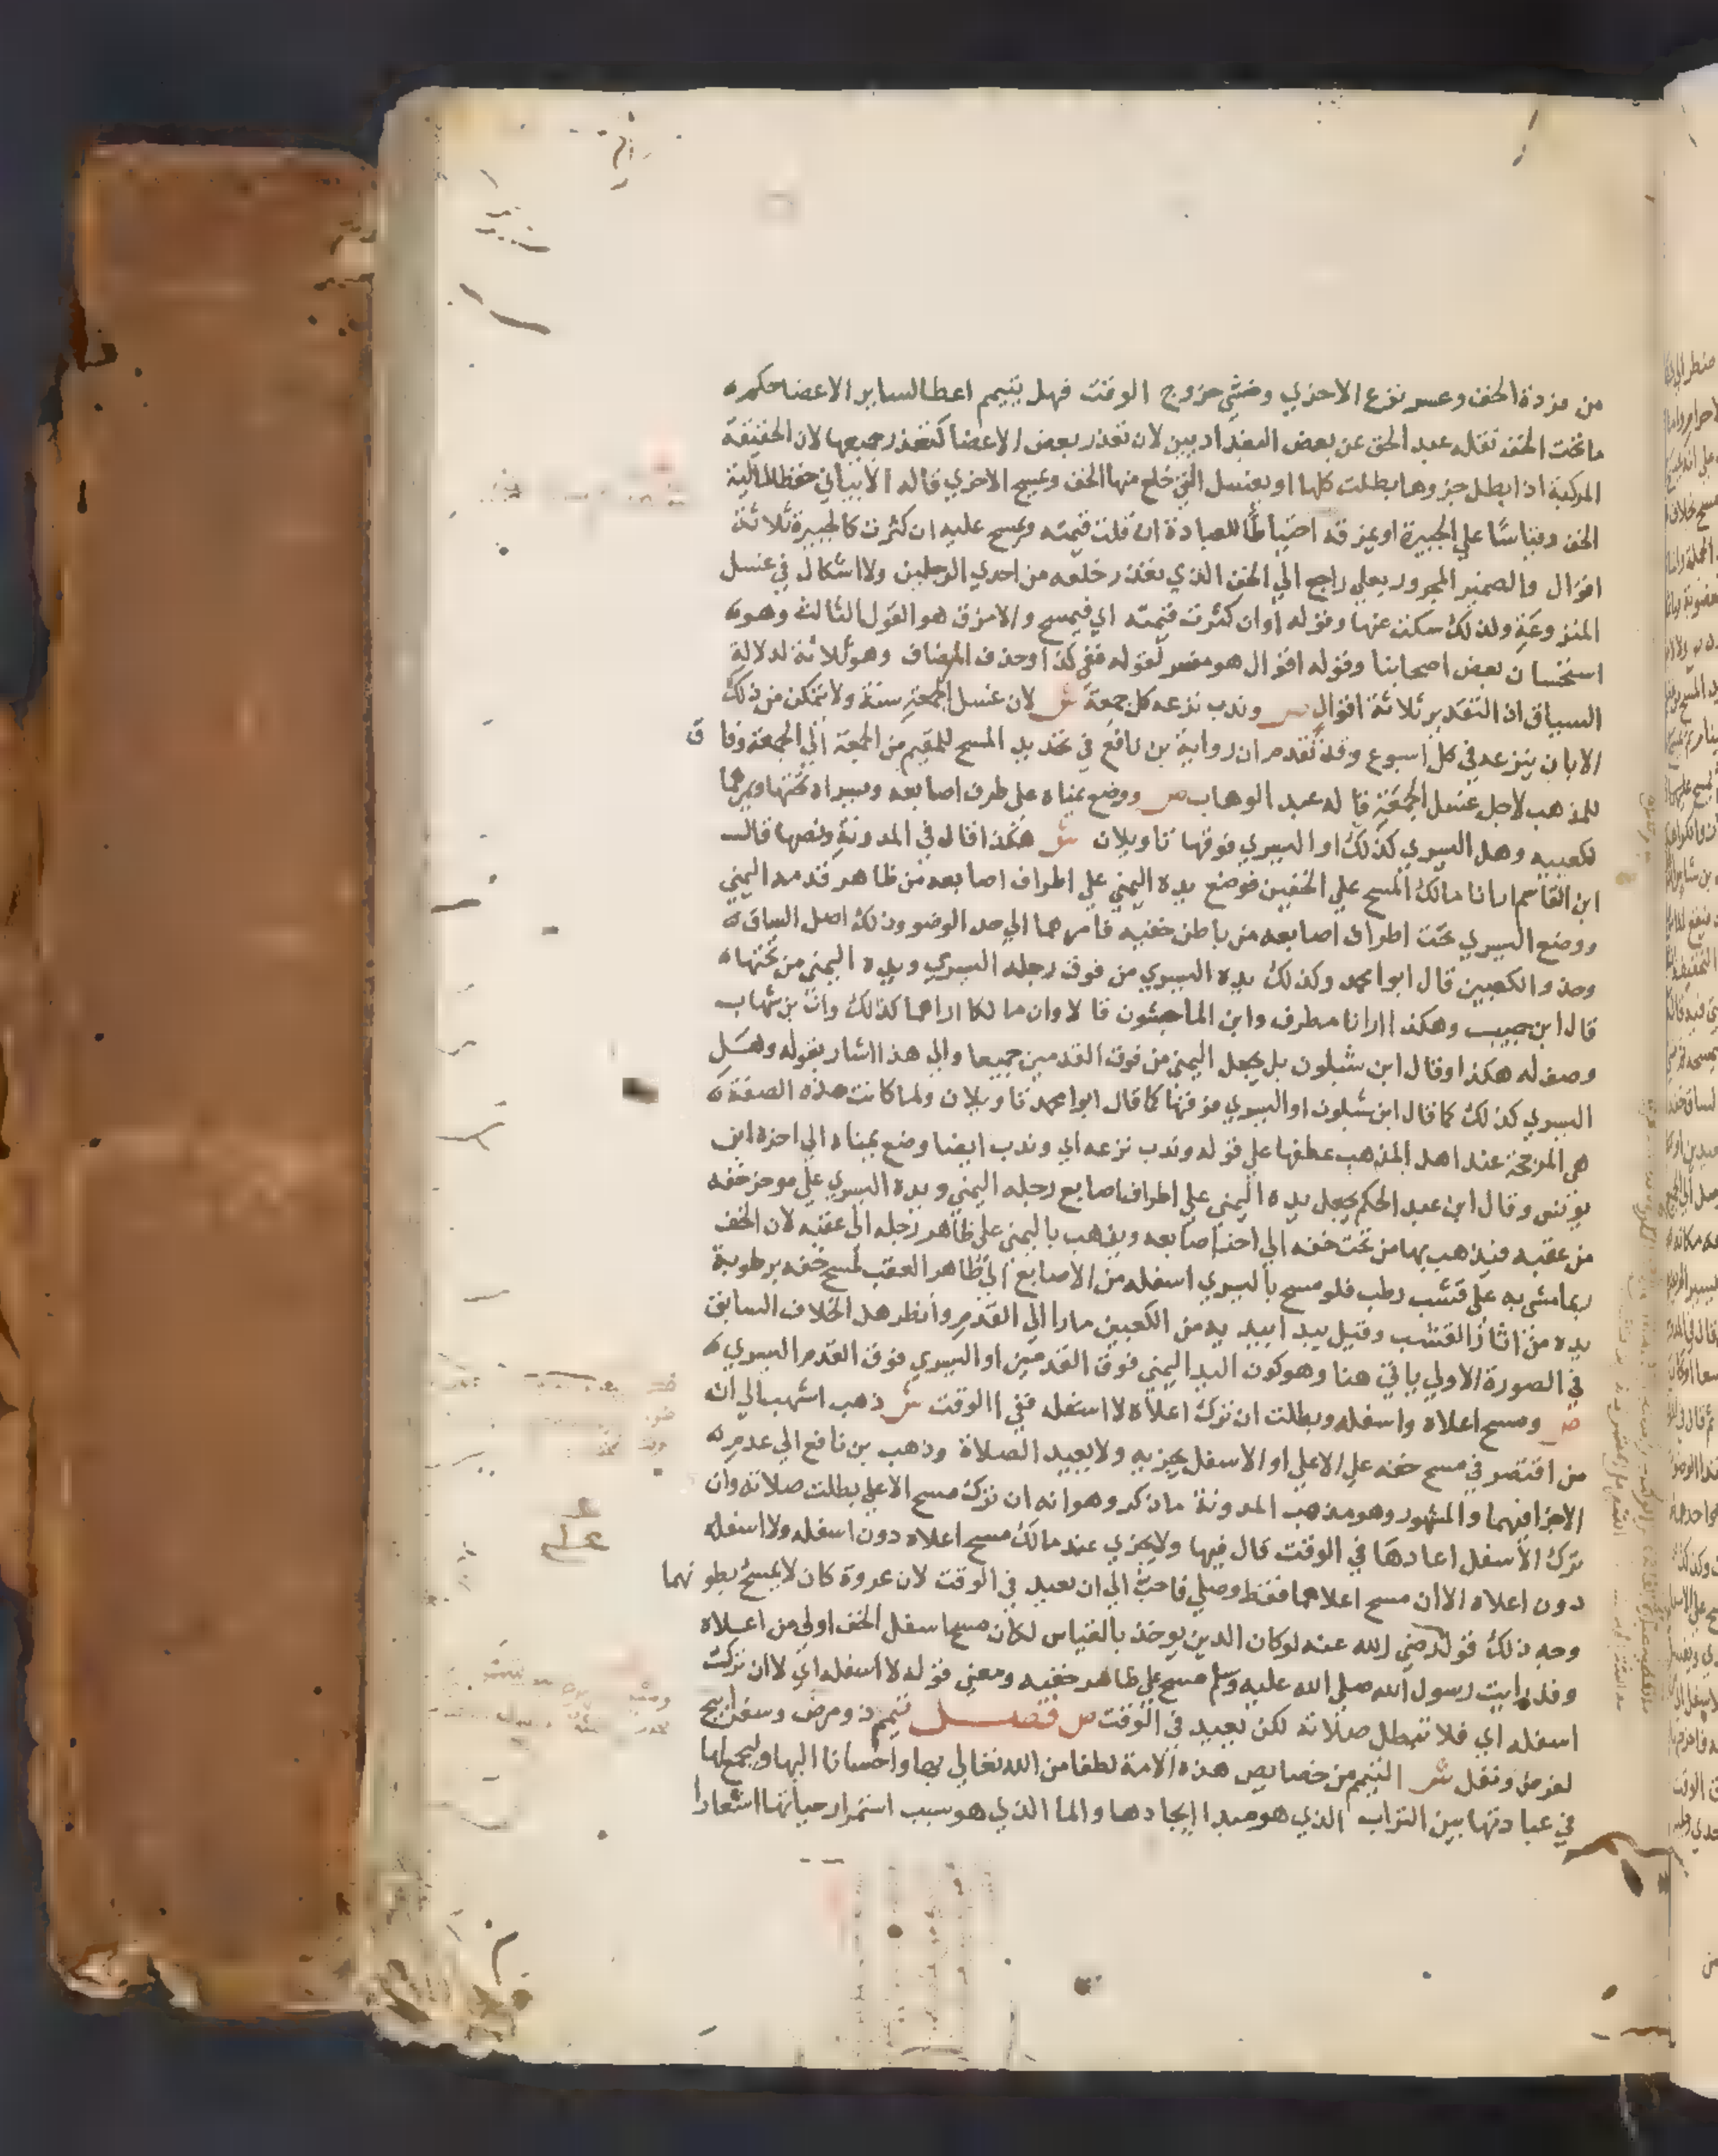 من مزدة الخف وعسر نزع الاخري وخشي خروج الوقت فهل يتيمم اعطا لساير الاعضا حكم
ما تحت الخف نقله عبد الحق عن بعض البغداديين لان تعذر بعض الاعضا كتعذر جميعها لان الحقيقة
المركبة اذا بطل جزوها بطلت كلها او يغسل التي خلع منها الخف ويمسح الاخري قاله الابياني حفظا لمالية
الخف وقياسا علي الجبيرة او يمزقه احتياطا للعبادة ان قلت قيمته ويمسح عليه ان كثرت كالجبيرة ثلاثة
اقوال والضمير المجرور بعلي راجع الي الخف الذي تعذر خلعه من احدي الرجلين ولا اشكال في غسل
المنزوعة ولذلك سكت عنها وقوله وان كثرت قيمته اي فيمسح والا مزق هو القول الثالث وهو
استحسان بعض اصحابنا وقوله اقوال هو مفسر لقوله ففي كذا وحذف المضاف وهو ثلاثة لدلالة
السياق اذ التقدير ثلاثة اقوال ص وندب نزعه كل جمعة ش لان غسل الجمعة سنة ولا تمكن من ذلك
الا بان ينزعه في كل اسبوع وقد تقدم ان رواية بن نافع في تحديد المسح للمقيم من الجمعة الي الجمعة وفا ق
للمذهب لاجل غسل الجمعة قاله عبد الوهاب ص ووضع يمناه علي طرف اصابعه ويسراه تحتها ويمرهما
لكعبيه وهل اليسري كذلك او اليسري فوقها تاويلان ش هكذا قال في المدونة ونصها قال
ابن القاسم ارانا مالك المسح علي الخفين فوضع يده اليمني علي اطراف اصابعه من ظاهر قدمه اليمني
ووضع اليسري تحت اطراف اصابعه من باطن خفيه فامرهما الي حد الوضو وذلك اصل الساق
وحذو الكعبين قال ابوا محمد وكذلك يده اليسري من فوق رجله اليسري ويده اليمني من تحتها
قال ابن حبيب وهكذا ارانا مطرف وابن الماجشون قالا وان مالكا اراهما كذلك وان بن شهاب
وصف له هكذا وقال ابن شبلون بل يجعل اليمني من فوق القدمين جميعا والي هذا اشار بقوله وهل
اليسري كذلك كما قال ابن شبلون او اليسري فوقها كما قال ابوا محمد تاويلان ولما كانت هذه الصفة
هي المرجحة عند اهل المذهب عطفها علي قوله وندب نزعه اي وندب ايضا وضع يمناه الي اخره ابن
يونس وقال ابن عبد الحكم يجعل يده اليمني علي اطراف اصابع رجله اليمني ويده اليسري علي موخر خفه
من عقبه فيذهب بها من تحت خفه الي اخر اصابعه ويذهب باليمني علي ظاهر رجله الي عقبه لان الخف
ربما مشي به علي قشب رطب فلو مسح باليسري اسفله من الاصابع الي ظاهر العقب لمسح خفه برطوبة
يده من اثار القشب وقيل يبدا بيديه من الكعبين مارا الي القدم وانظر هل الخلاف السابق
في الصورة الاولي ياتي هنا وهو كون اليد اليمني فوق القدمين او اليسري فوق القدم اليسري
ص ومسح اعلاه واسفله وبطلت ان ترك اعلاه لا اسفله ففي الوقت ش ذهب اشهب الي ان
من اقتصر في مسح خفه علي الاعلي او الاسفل يجزيه ولا يعيد الصلاة وذهب بن نافع الي عدم
الاجزا فيهما والمشهور وهو مذهب المدونة ما ذكر وهو انه ان ترك مسح الاعلي بطلت صلاته وان
ترك الاسفل اعادها في الوقت قال فيها ولا يجزي عند مالك مسح اعلاه دون اسفله ولا اسفله
دون اعلاه الا ان مسح اعلاهما فقط وصلي فاحب الي ان يعيد في الوقت لان عروة كان لا يمسح بطونهما
وجه ذلك قوله رضي الله عنه لو كان الدين يوخذ بالقياس لكان مسح اسفل الخف اولي من اعلاه
وقد رايت رسول الله صلي الله عليه وسلم مسح علي ظاهر خفيه ومعني قوله لا اسفله اي لا ان تركت
اسفله اي فلا تبطل صلاته لكن يعيد في الوقت ص فصل تيمم ذو مرض وسفر ابيح
لفرض ونفل ش التيمم من خصايص هذه الامة لطفا من الله تعالي بها واحسانا اليها وليجمع لها
في عبادتها بين التراب الذي هو مبدا ايجادها والما الذي هو سبب استمرار حياتها اشعارا